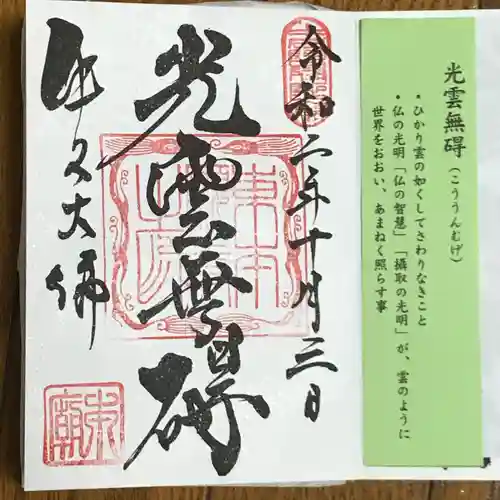 光雲無碍(こううんむげ)
・ひかり雲の如くしてさわりなきこと
・仏の光明「仏の智慧」「摂取の光明」が、雲のように
世界をおおい、あまねく照らす事
令和二年十月三日
光雲無碍
牛久大佛